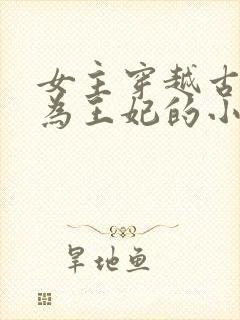 女主穿越古
為王妃的小
旱地鱼